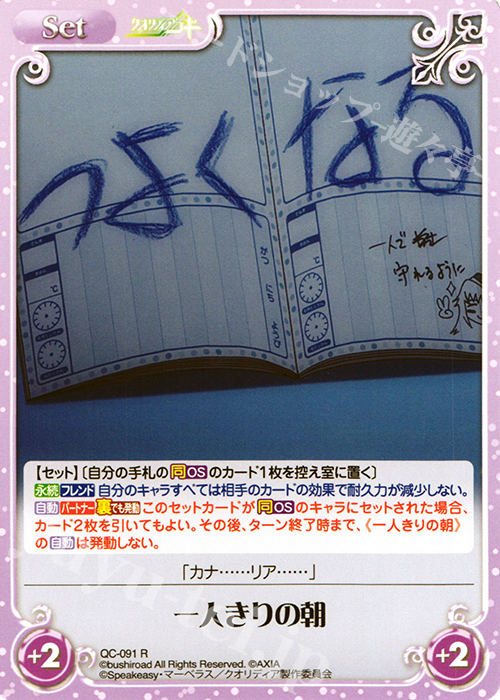 Set
クオリディア・コード
カードショップ-遊々亭-
つよくなる
一人で
守れるように
【セット】〔自分の手札の同OSのカード1枚を控え室に置く〕
永続 フレンド 自分のキャラすべては相手のカードの効果で耐久力が減少しない。
自動 パートナー 裏でも発動 このセットカードが同OSのキャラにセットされた場合、
カード2枚を引いてもよい。その後、ターン終了時まで、《一人きりの朝》
の自動は発動しない。
「カナ……リア……」
一人きりの朝
+2
QC-091 R
©bushiroad All Rights Reserved. ©AXIA
©Speakeasy・マーベラス／クオリディア製作委員会
+2